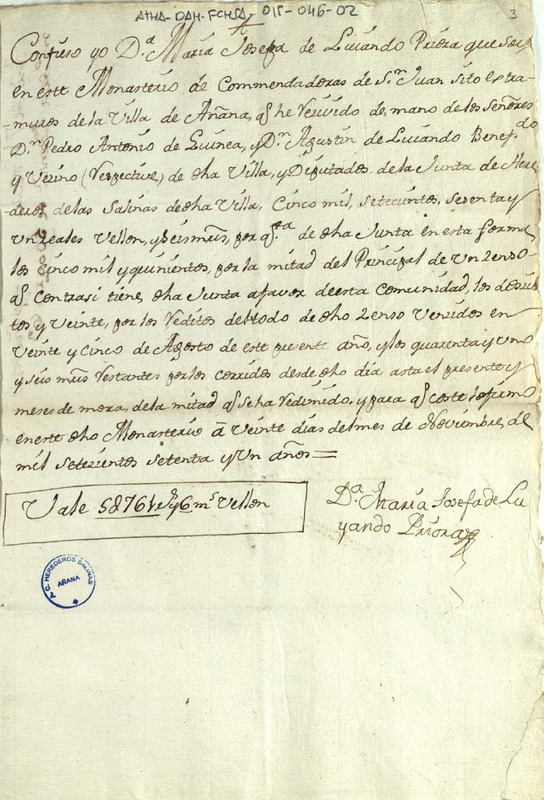 ATHA-DAH-FCHSA 015-046-02
3
Confieso yo D.ª Maria Josefa de Luiando Priora que soi
en este Monasterio de Commendadoras de S.n Juan sito extra-
-muros de la Villa de Añana, q.e he Rezivido de mano de los señores
D.n Pedro Antonio de Guinea, y D.n Agustin de Luiando Benef.do
y Vezino (Respective) de dha Villa, y Diputados de la Junta de Here
deros de las Salinas de dha Villa, Cinco mil, setecientos, sesenta y
un reales Vellon, y seis mrs, por q.ta de dha Junta en esta forma
los cinco mil y quinientos, por la mitad del Principal de un Zenso
q.e contra si tiene dha Junta a favor de esta comunidad, los dozien
tos y veinte, por los Reditos del todo de dho Zenso Venzidos en
veinte y cinco de Agosto de este presente año, y los quarenta y uno
y seis mrs Restantes por los corridos desde dho dia asta el presente y
meses de mora, de la mitad q.e se ha Redimido, y para q.e coste lo firmo
en este dho Monasterio à Veinte dias del mes de Noviembre, de
mil setezientos setenta y Un años=
Vale 58761 rs y 6 ms Vellon
D.ª Maria Josefa de Lu
yando Priora
C. HEREDEROS SALINAS
AÑANA